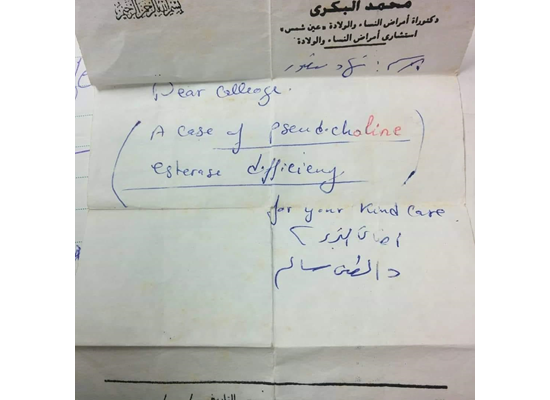 بسم الله الرحمن الرحيم
محمد البكرى
دكتوراة أمراض النساء والولادة «عين شمس»
استشارى أمراض النساء والولادة
Dear Colleage.
(A case of pseudicholine
esterase difficieny)
for your kind care
د.
سالم
التاريخ / /